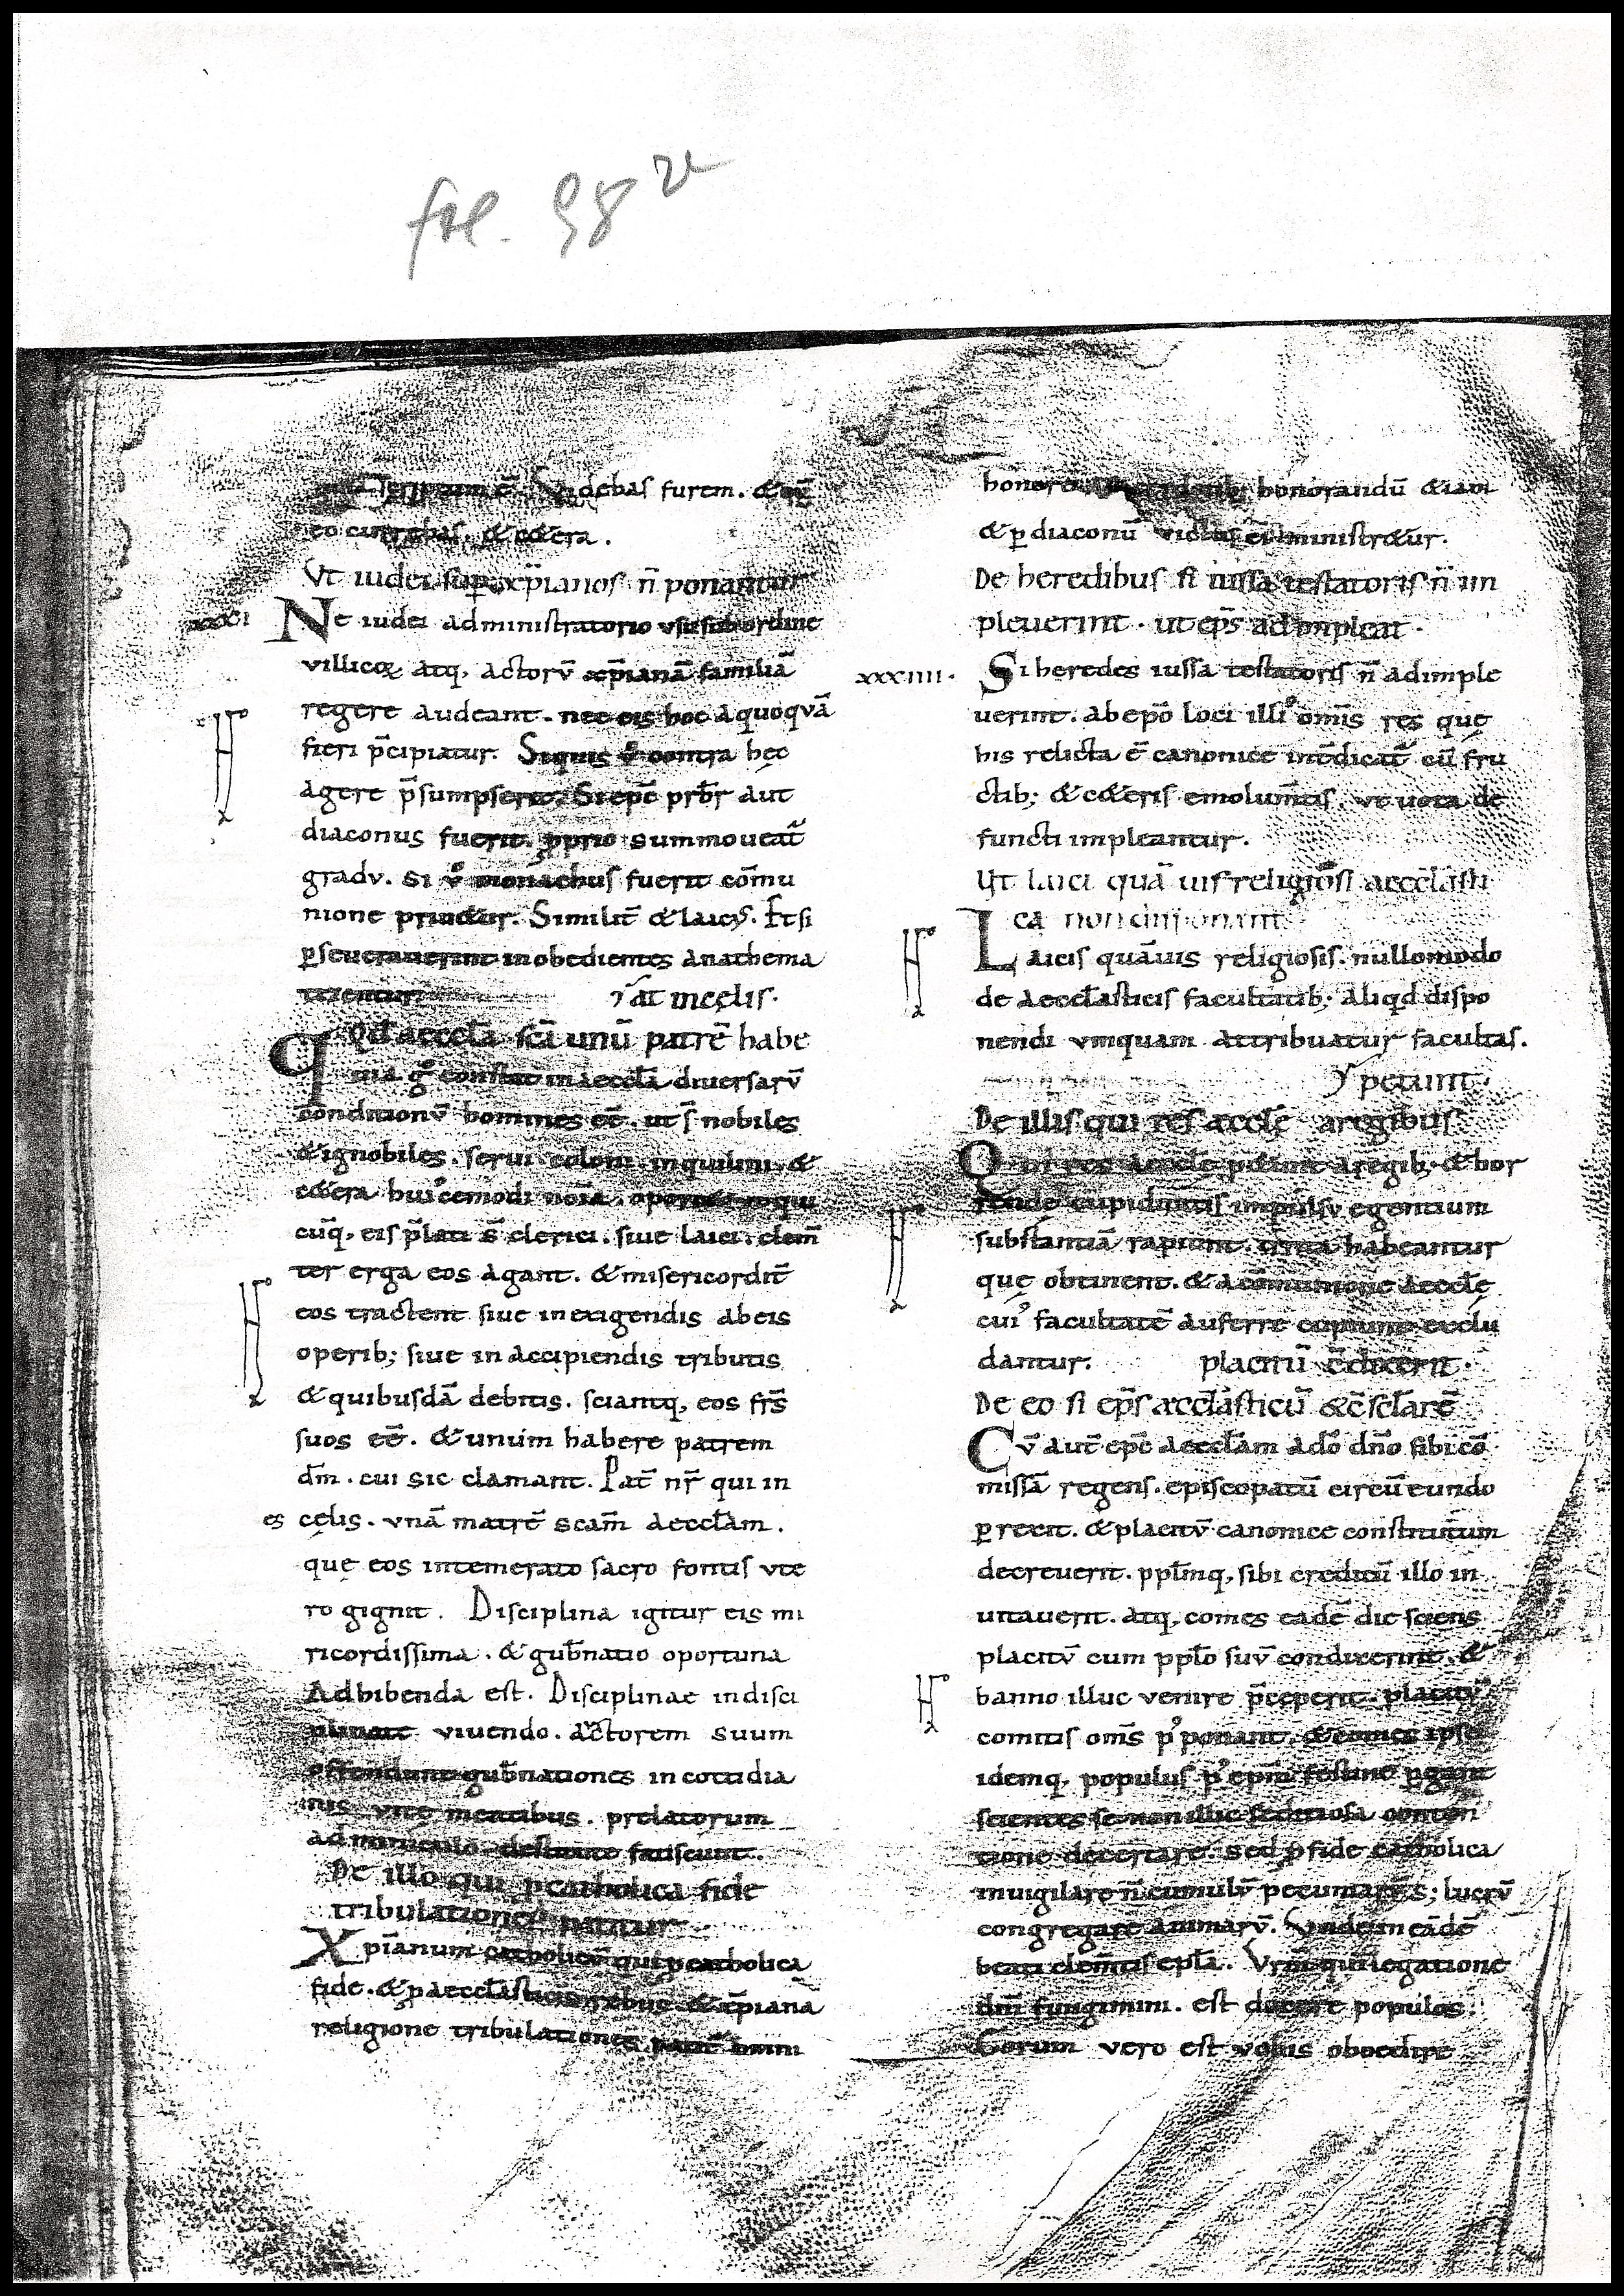 fol. 98 v
scriptum ē. Videbas furem. & cū
eo currebas. & cętera.
Vt iudei sup xp̄ianos n̄ ponantur
xxxi Ne iudei administratorio vsu sub ordine
villicoꝝ atq, actorv̄ xp̄ianā familiā
regere audeant. nec eis hoc a quoqvā
fieri p̄cipiatur. Siquis v̊ contra hęc
agere p̄sumpserit. Si ep̄c prb̄r aut
diaconus fuerit. ꝓprio summoueat̄
gradv. si v̊ monachus fuerit cōmu
nione priuetur. Similit̄ & laicꝰ. Et si
ꝑseuerauerint inobedientes anathema
tizentur. at in celis.
Qđ aeccła scā unū patrē habe
Quia g̊ constat in aeccła diuersarv̄
conditionv̄ homines eē. ut s̄ nobiles
& ignobiles. serui. coloni. inquilini. &
cętera huiꝰcemodi noīa. oportet ut qui
cūq, eis p̄lati s̄ clerici. siue laici. clem̄
ter erga eos agant. & misericordit̄
eos tractent siue in exigendis ab eis
operib; siue in accipiendis tributis
& quibusdā debitis. sciantq, eos fr̄s
suos eē. & unum habere patrem
dm̄. cui sic clamant. Pat̄ nr̄ qui in
es cęlis. vnā matrē scam̄ aecclam̄.
quę eos intemerato sacro fontis vte
ro gignit. Disciplina igitur eis mi
ricordissima. & gub̄natio oportuna
adhibenda est. Disciplinae indisci
plinate viuendo. actorem suum
offendunt gub̄nationes in cottidia
nis vitę meatibus. prelatorum
adminiculo destitute fatiscunt.
De illo qui ꝓ catholica fide
tribulationes patitur
Xpīanum catholicū qui ꝓ catholica
fide. & ꝓ aecclasticis rebus. & xp̄iana
religione tribulationes patit̄ omni
honore a sacerdotib; honorandū & iam
& ꝑ diaconū victus ei ministretur.
De heredibus si iussa testatoris n̄ im
pleuerint. ut ep̄s adimpleat.
xxxiiii. Si heredes iussa testatoris n̄ adimple
uerint. ab epō loci illiꝰ omīs res quę
his relicta ē canonice int̄dicat̄ cū fru
ctib; & cęteris emolum̄tis. vt uota de
functi impleantur.
Ut laici quā uis religiosi aecclasti
ca non disponant
Laicis quāuis religiosis. nullomodo
de aecclasticis facultatib; aliqd dispo
nendi vmquam attribuatur facultas.
petunt.
De illis qui res aeccłe a regibus
Qui res aeccłe petunt a regib; & hor
rendę cupiditatis impulsv egentium
substantiā rapiunt. irrita habeantur
quę obtinent. & a cōmunione aeccłę
cuiꝰ facultatē auferre cupiunt exclu
dantur. placitū c̄dixerit.
De eo si ep̄s aecclasticū & c̄s sclarē
Cv̄ aut̄ epc̄ aecclam̄ a dō dn̄o sibi cō
missā regens. episcopatū circūeundo
ꝑrexit. & placitv̄ canonice constitutum
decreuerit. pplm̄q, sibi creditū illo in
uitauerit. atq, comes eadē die sciens
placitv̄ cum ppło suv̄ condixerint. &
banno illuc venire p̄ceperit. placitv̄
comitis om̄s pꝰponant. & comes ipse
idemq, populus pꝰ epm̄ festine ꝑgant
scientes se non illic seditiosa conten
tione decertare. sed ꝓ fide catholica
inuigilare n̄ cumulv̄ pecuniarv̄ s; lucrv̄
congregare animarv̄. Vnde in eadē
beati clem̄tis epła. Vrm̄ qui legatione
dm̄ fungimini. est docere populos.
Eorum vero est vobis oboedire